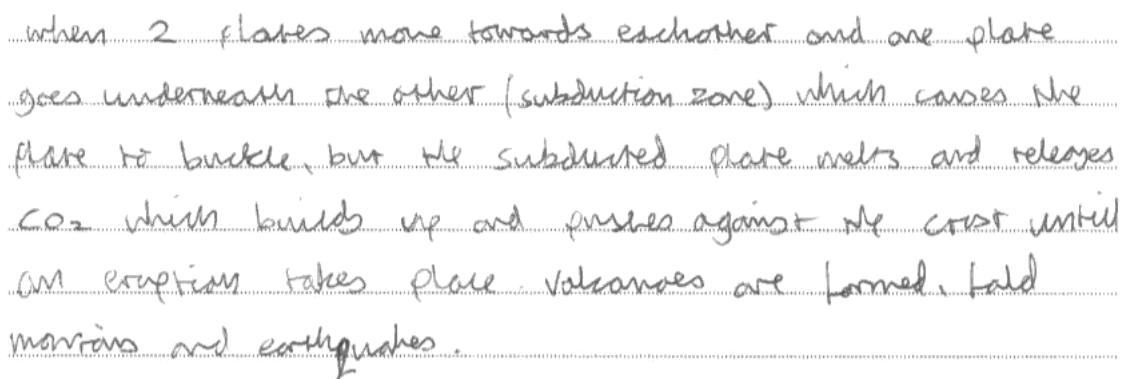 when 2 plates move towards eachother and one plate
goes underneath the other (subduction zone) which causes the
plate to buckle, but the subducted plate melts and releases
CO2 which builds up and pushes against the crust untill
an eruption takes place. Volcanoes are formed, fold
montains and earthquakes.